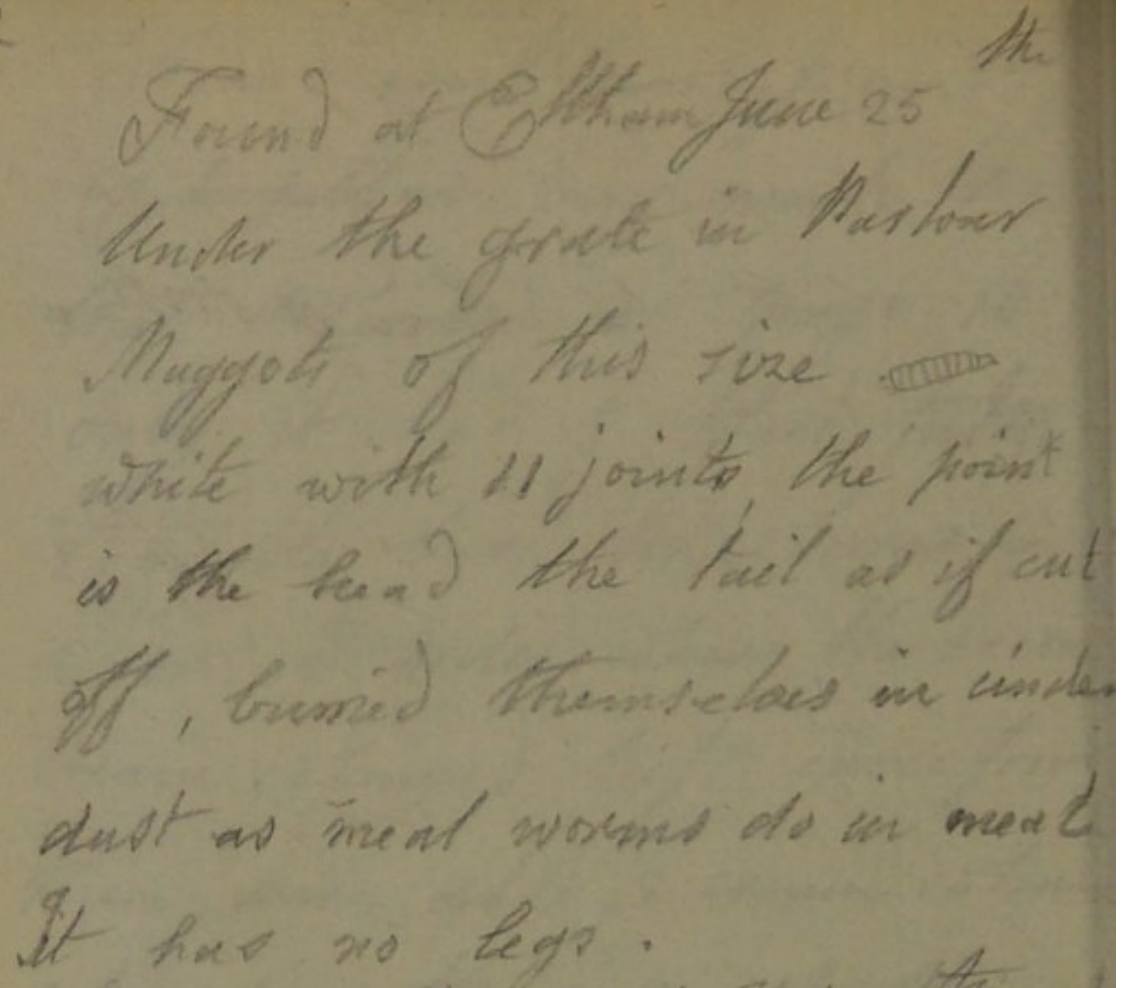 Found at Eltham June 25th
Under the grate in Parlour
Maggots of this size
white with 11 joints, the point
is the head the tail as if cut
off, burried themselves in cinder
dust as meal worms do in meal
It has no legs.